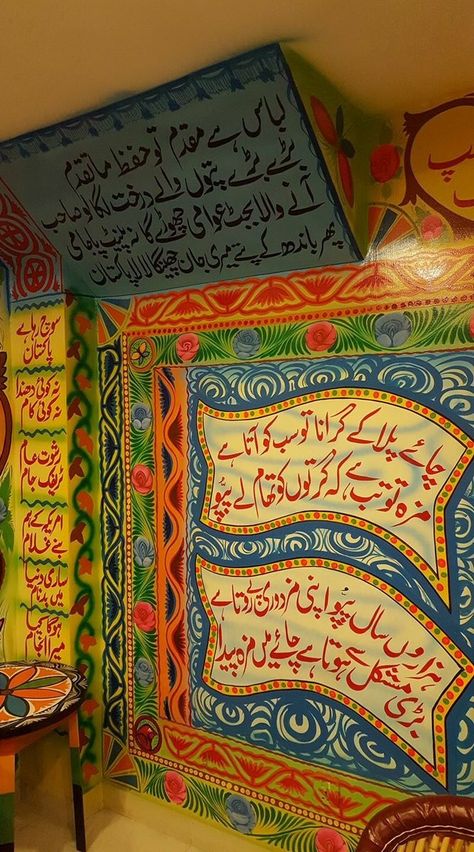 لباس ہے مقدم تو حفظ ماتقدم
بڑے بڑے پتوں والے درخت لگاؤ صاحب
آنے والا بجٹ عوامی چھوڑے گا نہ پینٹ پاجامی
پھر باندھ کے پتے میری جان چھینکا لالا پاکستان
سوچ رہا ہے
پاکستان
نہ کوئی دھندا
نہ کوئی کام
رشوت عام
ٹریفک جام
امریکہ کے ہم
بنے غلام
ساری دنیا
میں بدنام
ہو گا کیا
میرا انجام
چائے پلا کے گرانا تو سب کو آتا ہے
مزہ تو تب ہے کہ گرتوں کو تھام لے پپو
ہزاروں سال پپو اپنی مزدوری پے روتا ہے
بڑی مشکل سے ہوتا ہے چائے میں مزہ پیدا